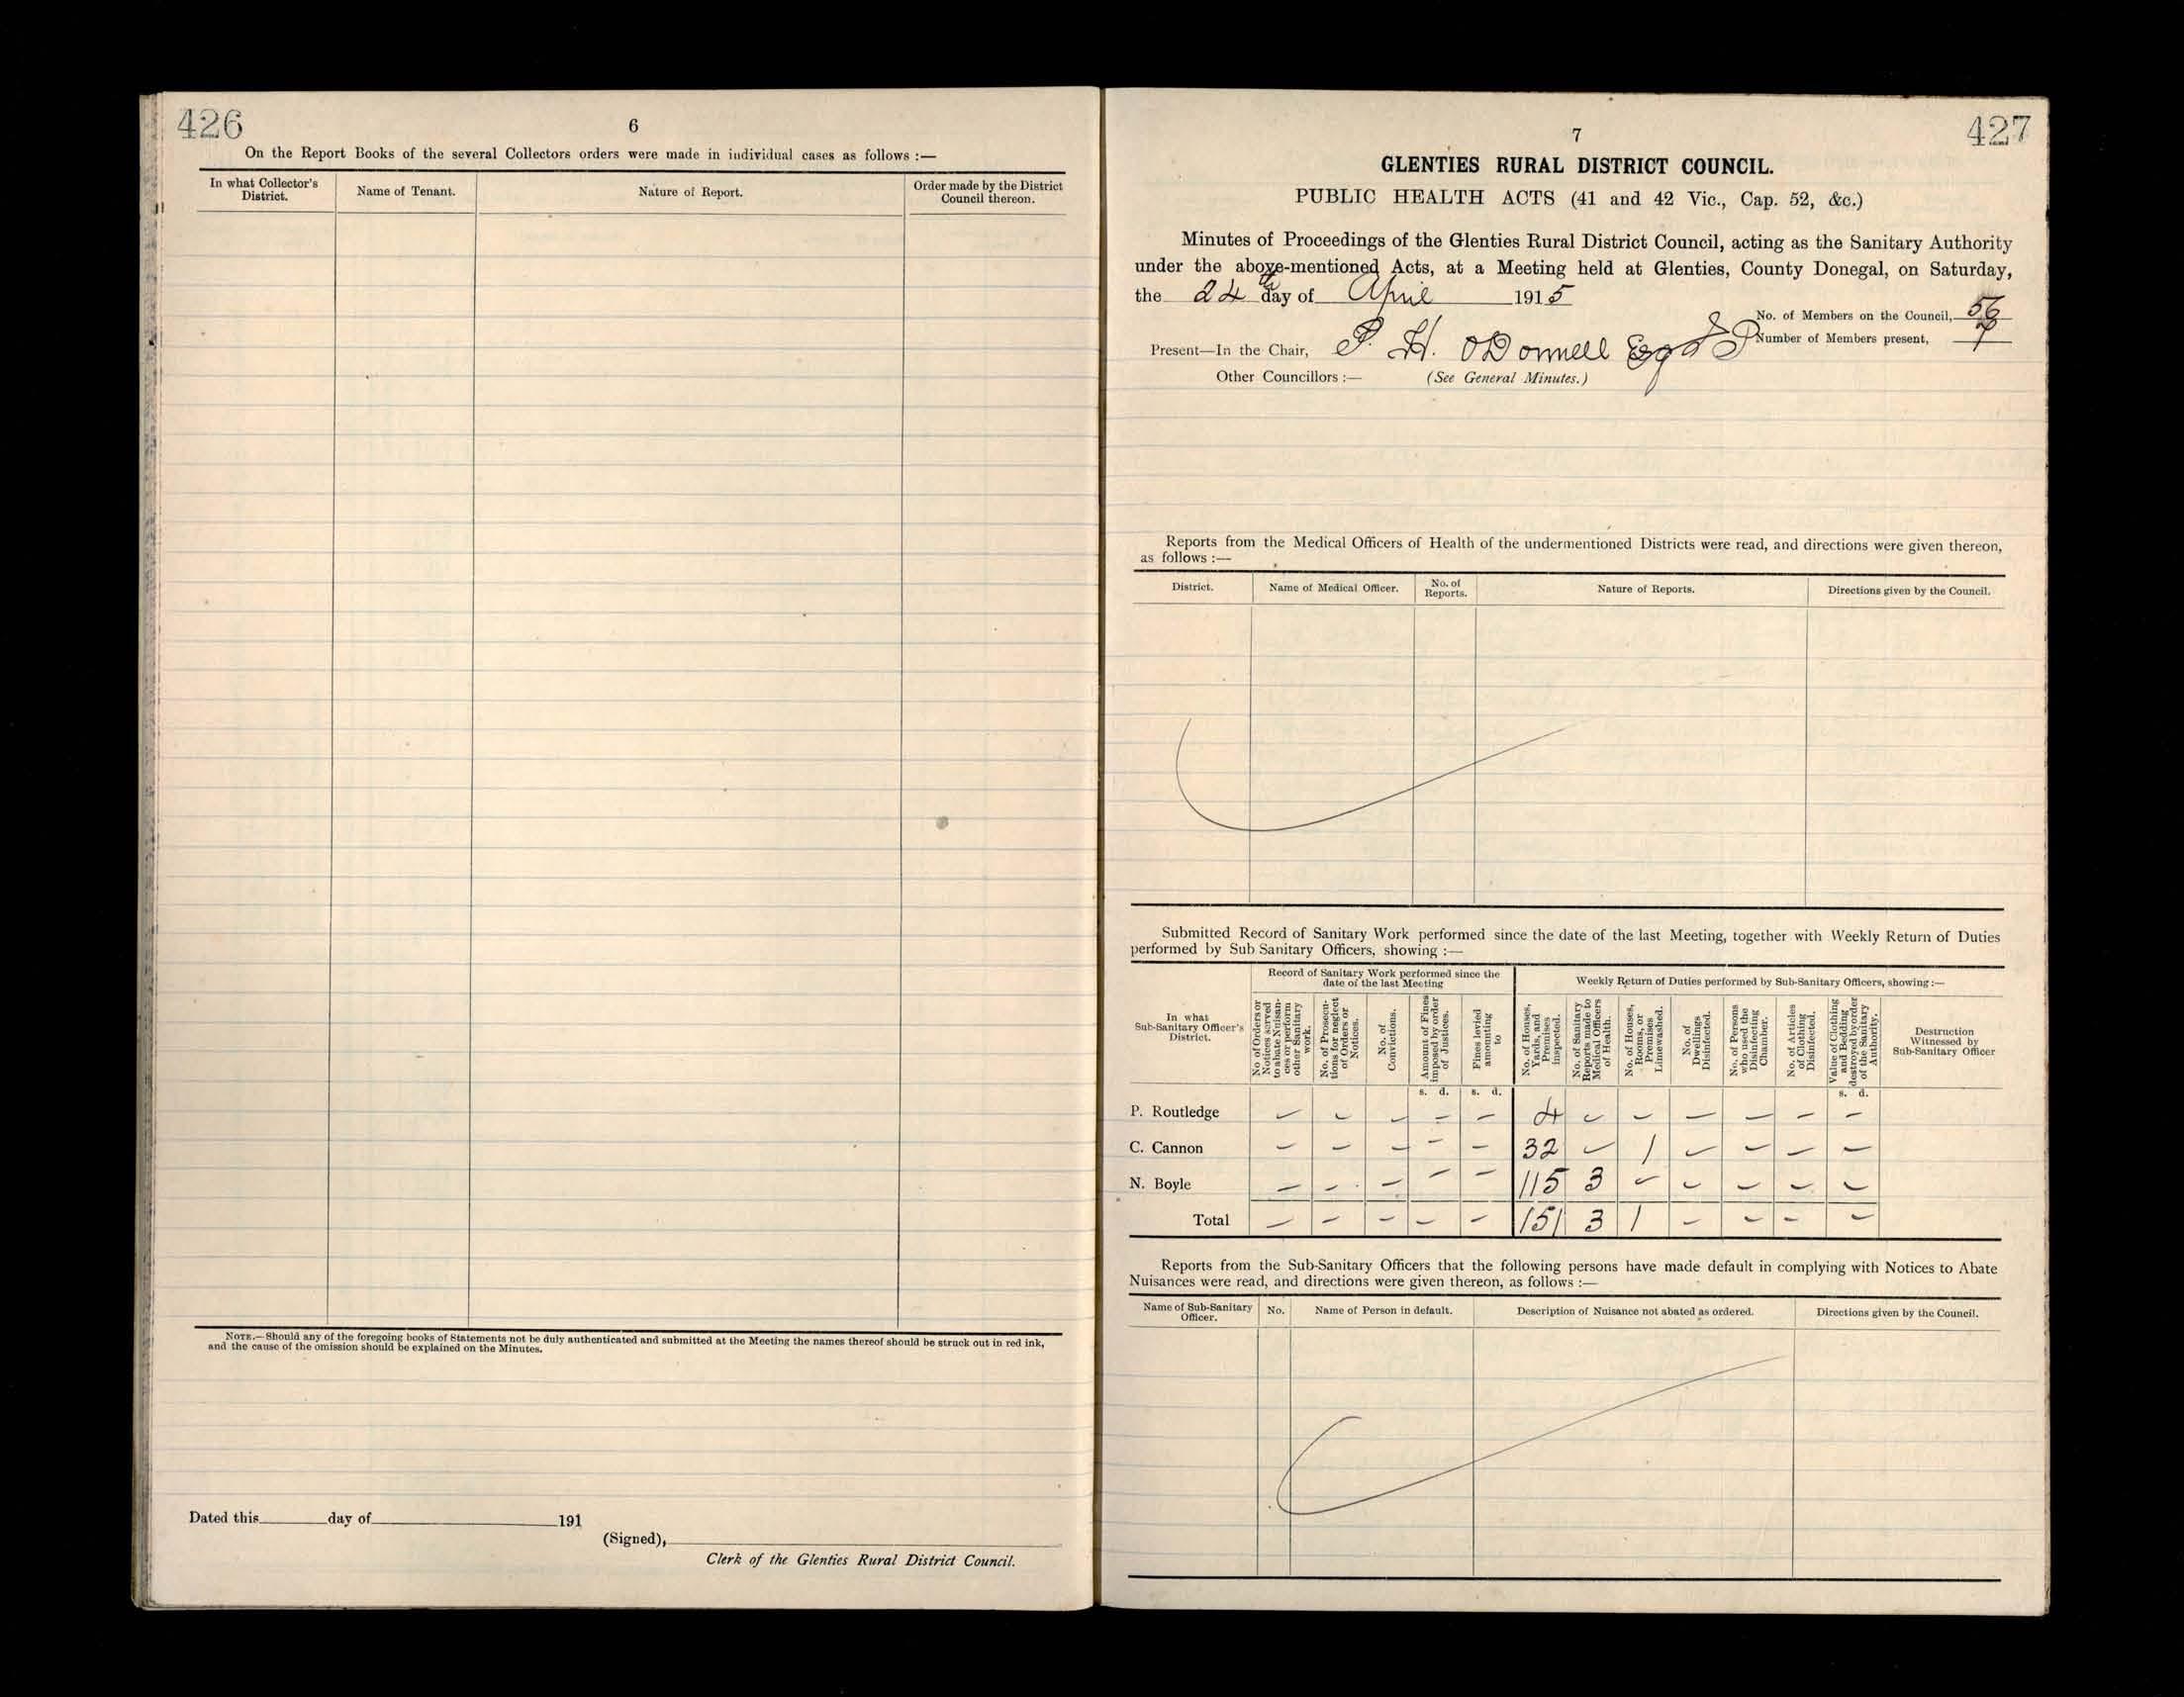 426
6
On the Report Books of the several Collectors orders were made in individual cases as follows :—
In what Collector's District.
Name of Tenant.
Nature of Report.
Order made by the District Council thereon.
NOTE.—Should any of the foregoing books of Statements not be duly authenticated and submitted at the Meeting the names thereof should be struck out in red ink,
and the cause of the omission should be explained on the Minutes.
Dated this day of 191
(Signed),
Clerk of the Glenties Rural District Council.
427
7
GLENTIES RURAL DISTRICT COUNCIL.
PUBLIC HEALTH ACTS (41 and 42 Vic., Cap. 52, &c.)
Minutes of Proceedings of the Glenties Rural District Council, acting as the Sanitary Authority
under the above-mentioned Acts, at a Meeting held at Glenties, County Donegal, on Saturday,
the 24th day of April 1915
No. of Members on the Council, 56
Present—In the Chair, P. H. O'Donnell Esq JP
Number of Members present, 7
Other Councillors :— (See General Minutes.)
Reports from the Medical Officers of Health of the undermentioned Districts were read, and directions were given thereon,
as follows :—
District.
Name of Medical Officer.
No. of Reports.
Nature of Reports.
Directions given by the Council.
Submitted Record of Sanitary Work performed since the date of the last Meeting, together with Weekly Return of Duties
performed by Sub Sanitary Officers, showing :—
Record of Sanitary Work performed since the
date of the last Meeting
Weekly Return of Duties performed by Sub-Sanitary Officers, showing :—
In what Sub-Sanitary Officer's District.
No of Orders or Notices served to abate Nuisances or perform other Sanitary work.
No. of Prosecutions for neglect of Orders or Notices.
No. of Convictions.
Amount of Fines imposed by order of Justices.
Fines levied amounting to
No. of Houses, Yards, and Premises inspected.
No. of Sanitary Reports made to Medical Officers of Health.
No. of Houses, Rooms, or Premises Limewashed.
No. of Dwellings Disinfected.
No. of Persons who used the Disinfecting Chamber.
No. of Articles of Clothing Disinfected.
Value of Clothing and Bedding destroyed by order of the Sanitary Authority.
Destruction Witnessed by Sub-Sanitary Officer
s. d. s. d. s. d.
P. Routledge — — — — — 4 — — — — — —
C. Cannon — — — — — 32 — 1 — — — —
N. Boyle — — — — — 115 3 — — — — —
Total — — — — — 151 3 1 — — — —
Reports from the Sub-Sanitary Officers that the following persons have made default in complying with Notices to Abate
Nuisances were read, and directions were given thereon, as follows :—
Name of Sub-Sanitary Officer.
No.
Name of Person in default.
Description of Nuisance not abated as ordered.
Directions given by the Council.